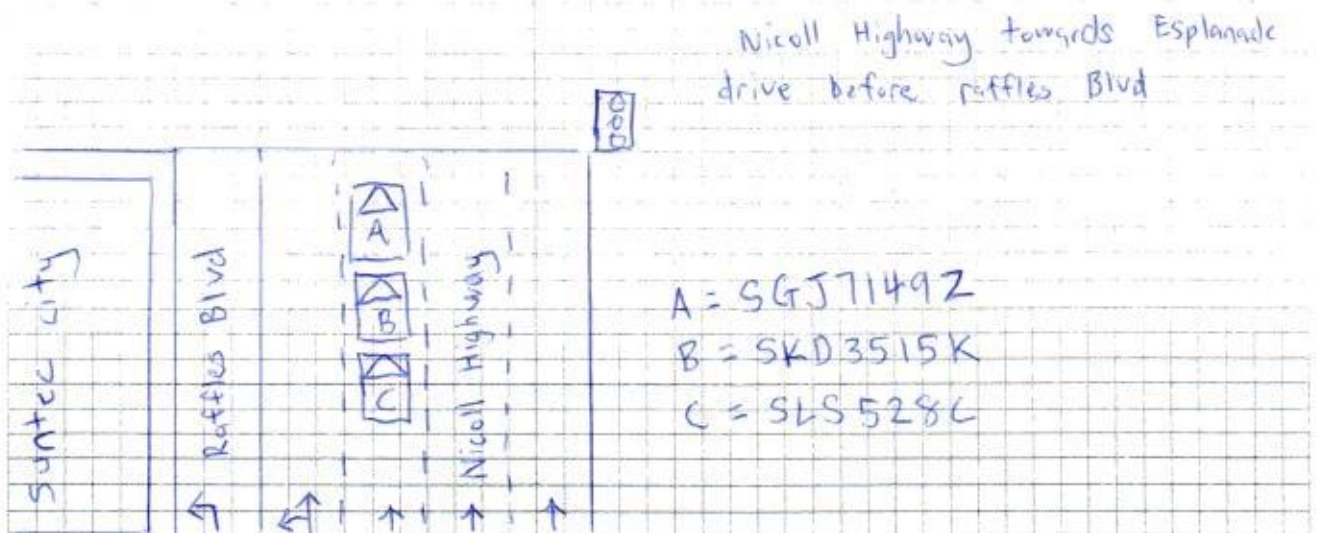 Nicoll Highway towards Esplanade
drive before raffles Blvd
Suntec City
Raffles Blvd
A
B
C
Nicoll Highway
A = SGJ7149Z
B = SKD3515K
C = SLS528C